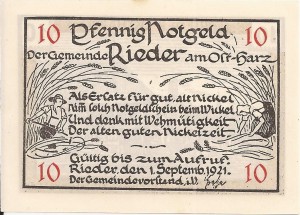 10 Pfennig Notgeld 10
Der Gemeinde Rieder am Ost-Harz
Als Ersatz für gut, alt Nickel
Nim solch Notgeldschein beim Wickel
Und denk mit Wehmütigkeit
Der alten guten Nickelzeit
Gültig bis zum Aufruf.
Rieder, den 1. Septemb. 1921.
10 Der Gemeindevorstand, i.V. 10